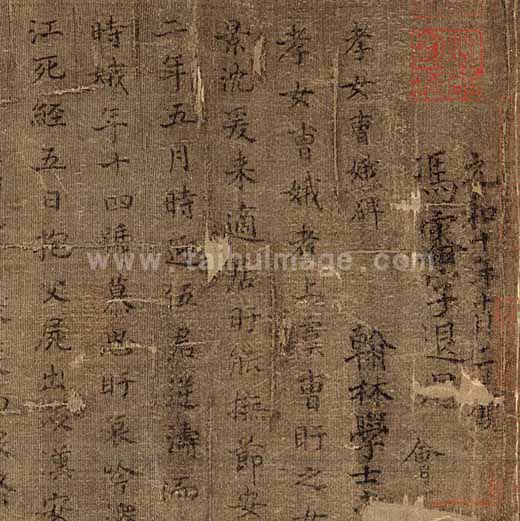 元和十年十月二日觀
馮審字退
翰林學士
會
孝女曹娥碑
孝女曹娥者上虞曹盱之女
景沈爰来適居盱能撫節安
二年五月時迎伍君逆濤而
時娥年十四號慕思盱哀吟澤
江死經五日抱父屍出以漢安
www.taihuImage.com